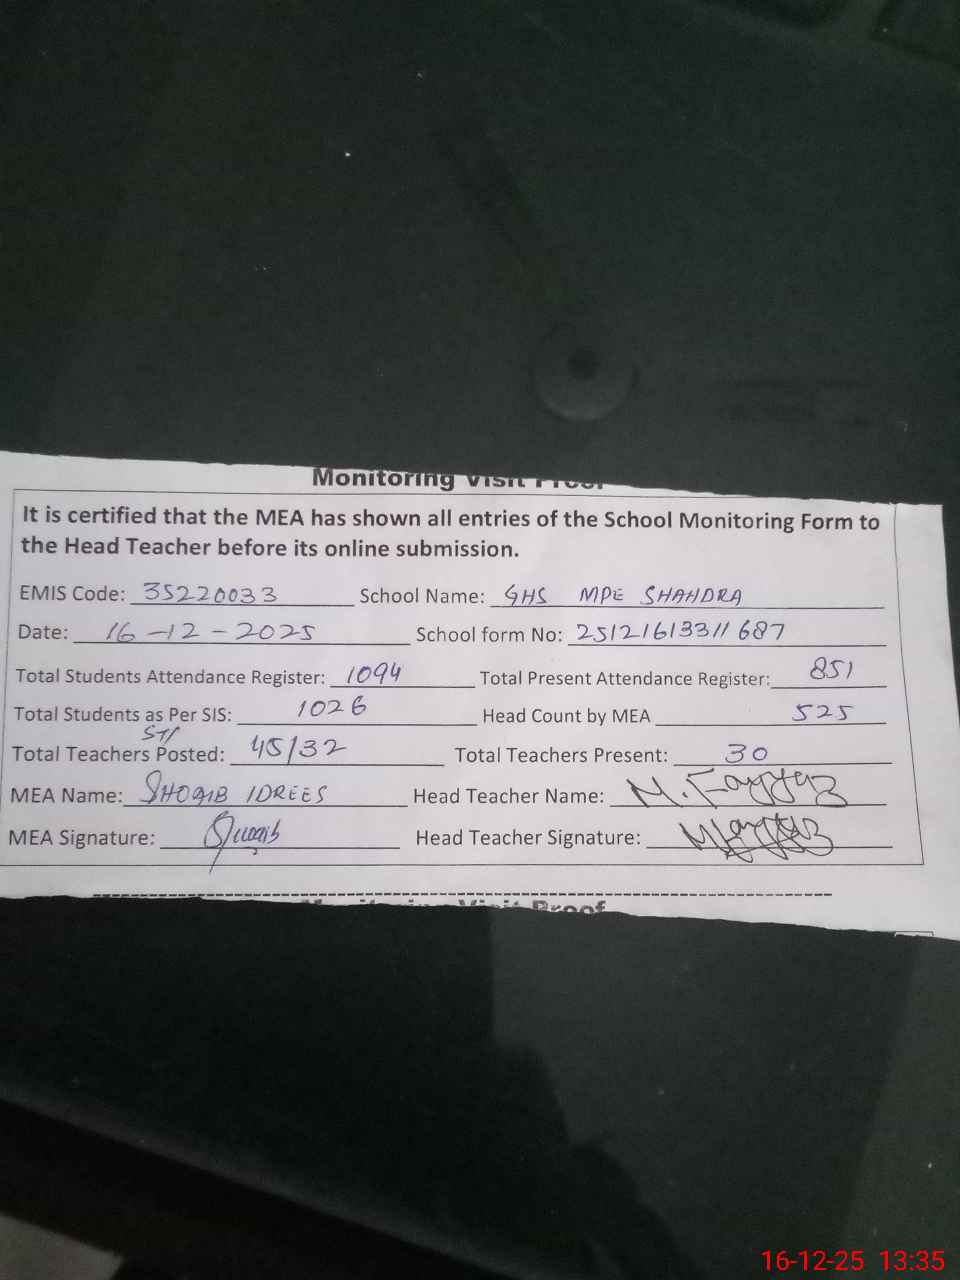 Monitoring Visit Proof
It is certified that the MEA has shown all entries of the School Monitoring Form to
the Head Teacher before its online submission.
EMIS Code: 35220033 School Name: GHS MPE SHAHDRA
Date: 16-12-2025 School form No: 25121613311687
Total Students Attendance Register: 1094 Total Present Attendance Register: 851
Total Students as Per SIS: 1026 Head Count by MEA 525
Total Teachers Posted: 45/32 Total Teachers Present: 30
MEA Name: SHOAIB IDREES Head Teacher Name: M. Fayyaz
MEA Signature: Shoaib Head Teacher Signature:
Monitoring Visit Proof
16-12-25 13:35